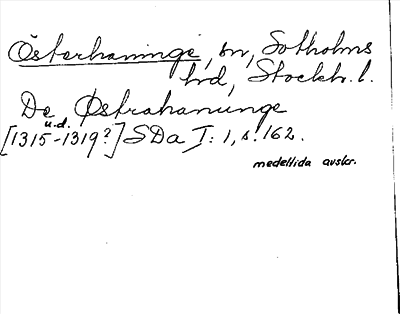 Österhaninge, sn, Sotholms
hrd, Stockh. l.
De Østrahanunge
u.d.
[1315-1319?] SDa I: 1, s. 162.
medeltida avskr.